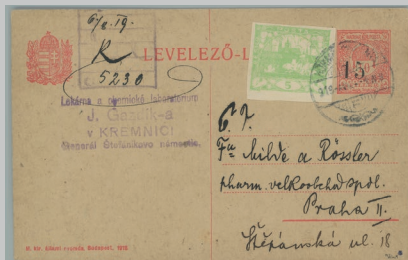 6/8 19.
R
5230
LEVELEZŐ-L
15
Lekárna a chemické laboratorium
J. Gazdik-a
v KREMNICI
Generál Štefánikovo námestie.
C. T.
Fa Milde a Rössler
pharm. velkoobchod spol.
Praha II.
Štěpánská ul. 18
M. kir. állami nyomda, Budapest, 1918.